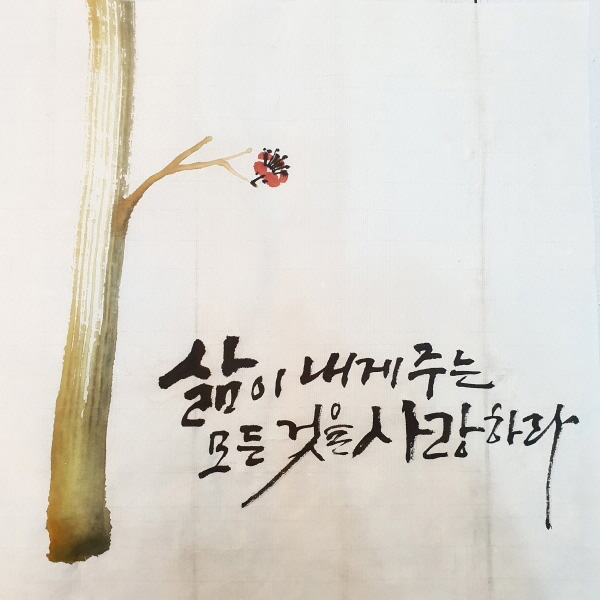 삶이 내게 주는
모든 것을 사랑하라